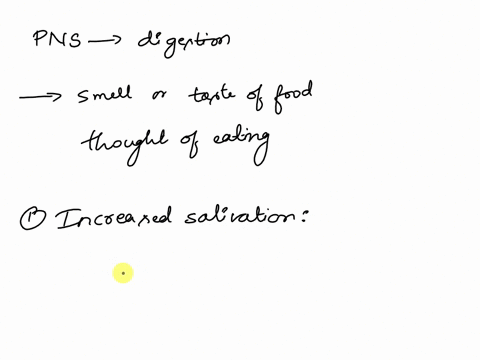 PNS → digestion
→ smell or taste of food
thought of eating
① Increased salivation: